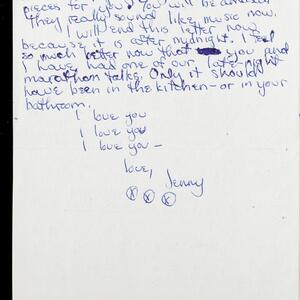 pieces for you. You will be amazed
they really sound like music now.
I will end this letter now
because it is after mydnight. I feel
so much better now that you and
I have had one of our late-night
marathom talks. Only it should
have been in the kitchen - or in your
bathroom.
I love you
I love you
I love you -
love,
Jenny
x x x